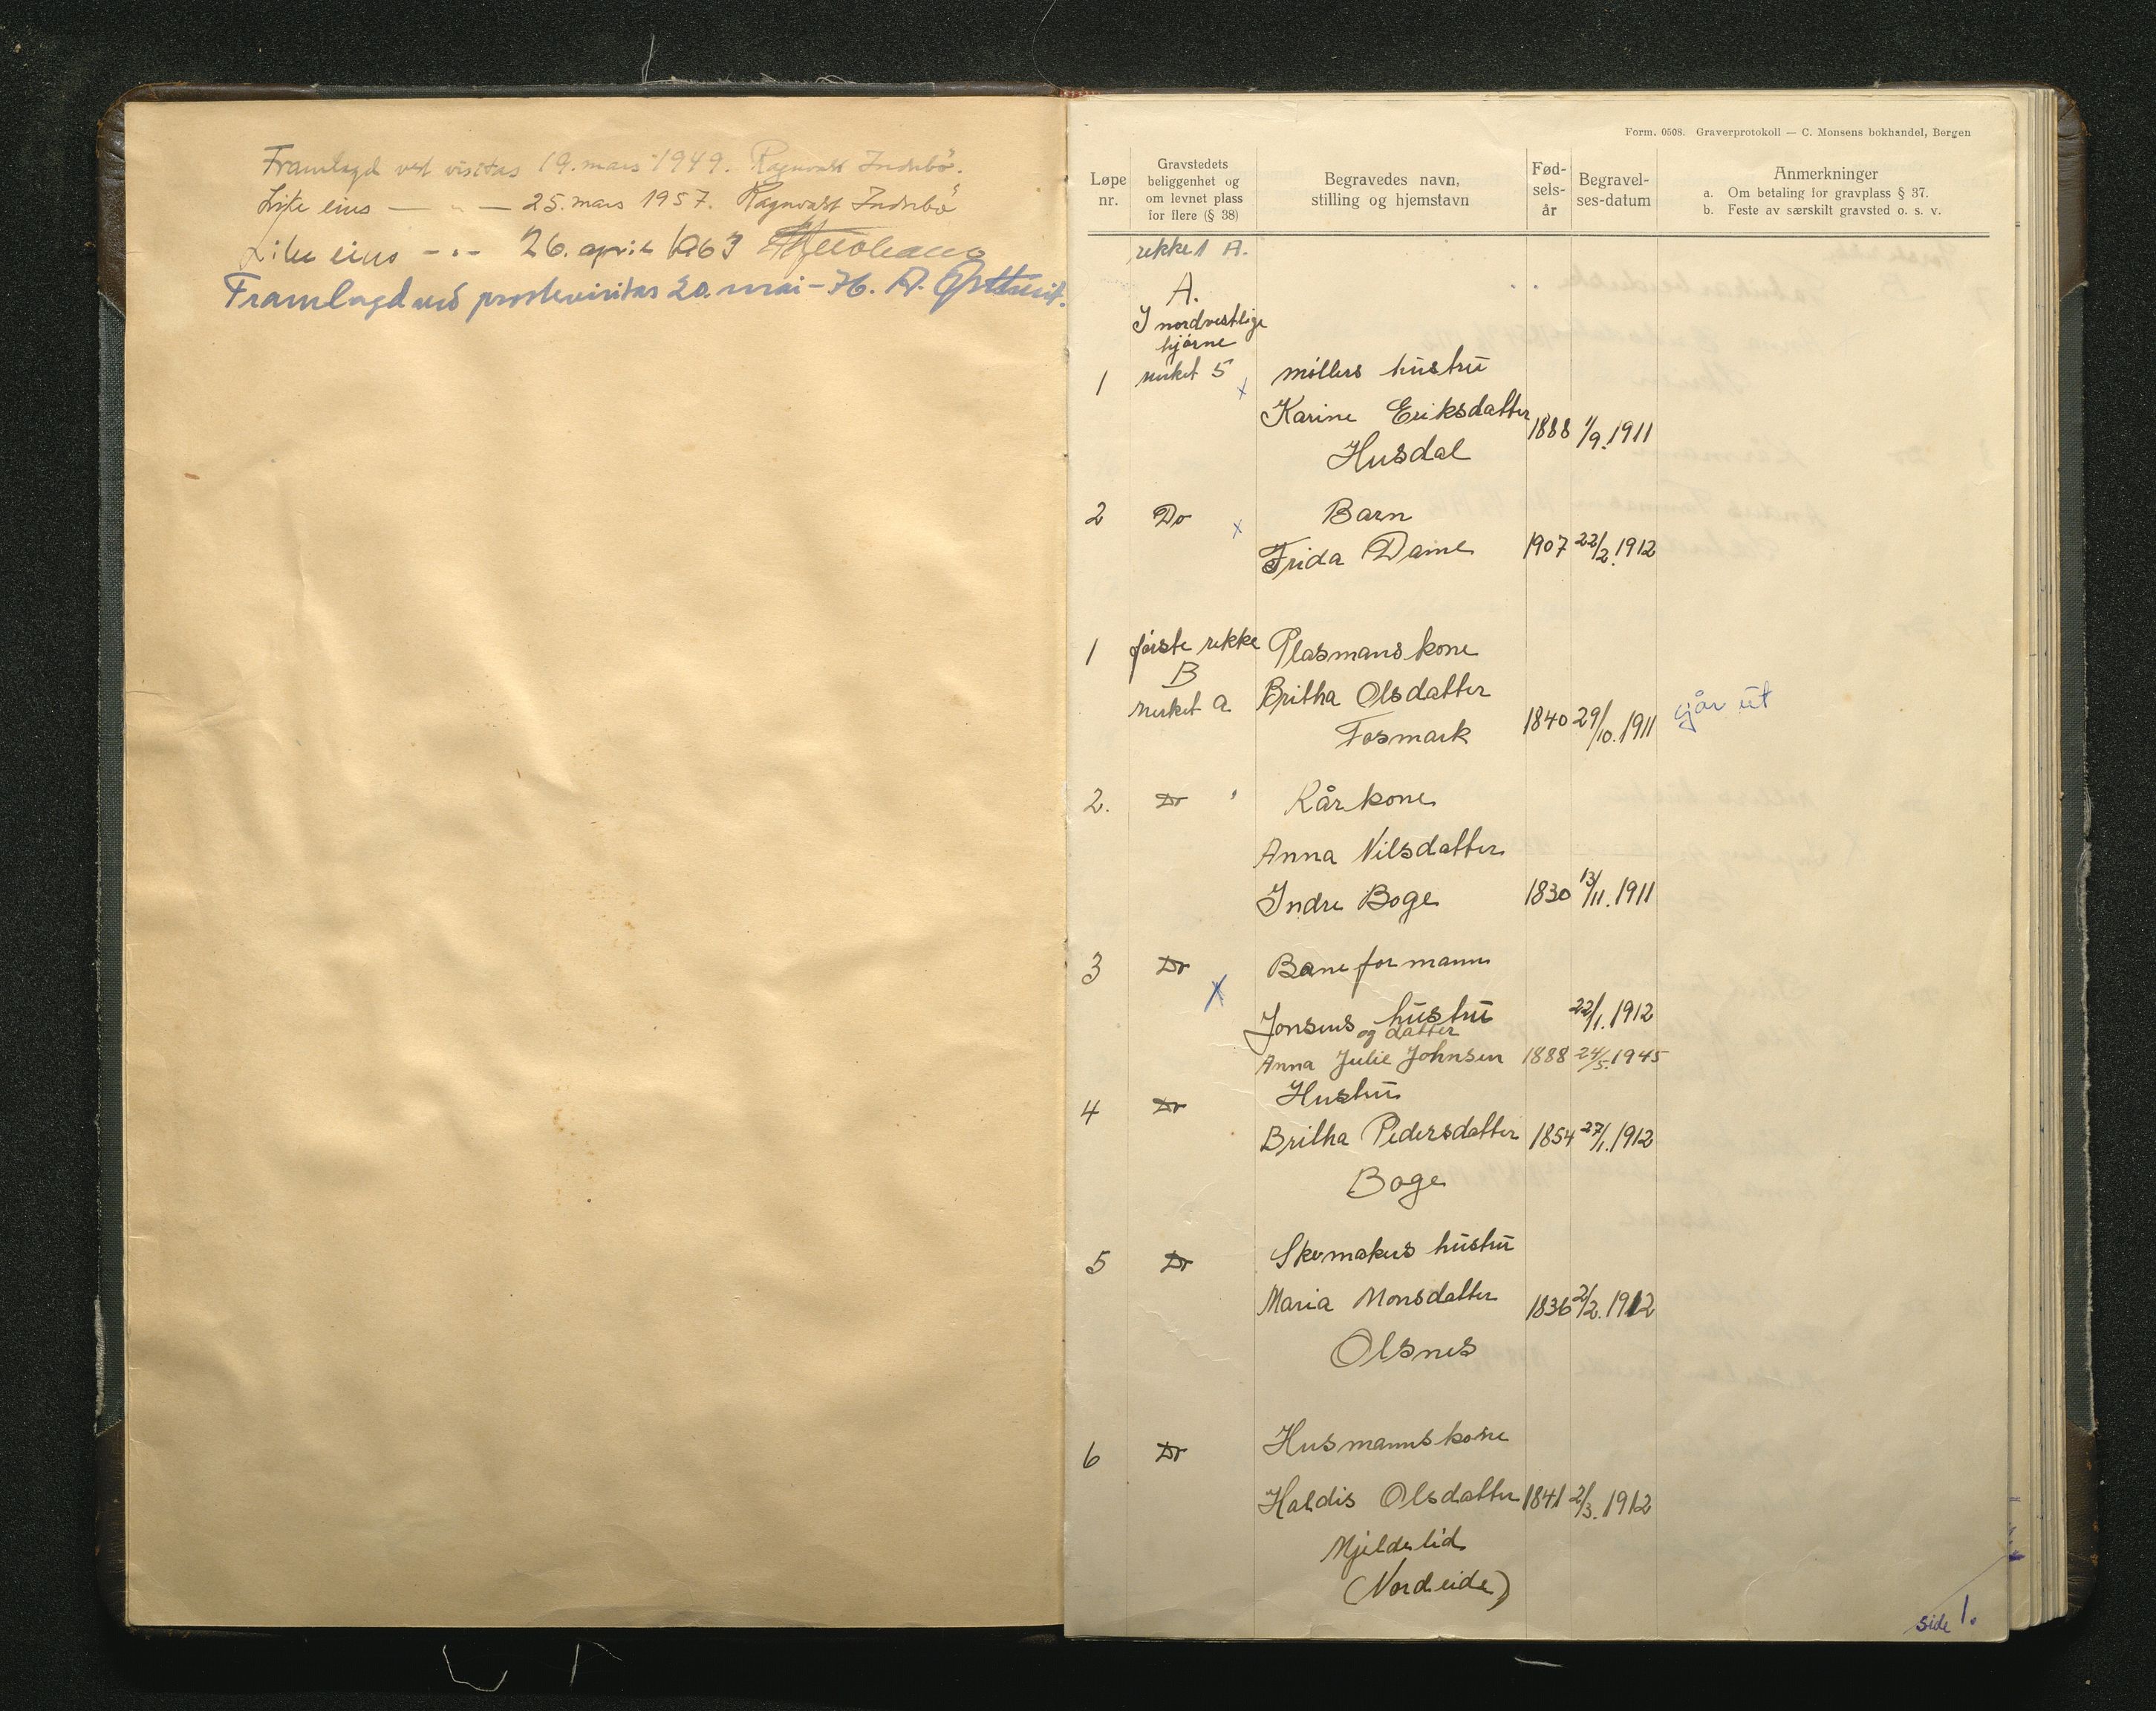 Framlagd ved visitas 19. mars 1949. Ragnvald Indrebö.
Like eins — " — 25. mars 1957. Ragnvald Indrebö
Like eins - " - 26. april 1963
Framlagd ved prostevisitas 20. mai - 76. A.
Form. 0508. Graverprotokoll — C. Monsens bokhandel, Bergen
Løpe nr.
Gravstedets beliggenhet og om levnet plass for flere (§ 38)
Begravedes navn, stilling og hjemstavn
Fød-sels-år
Begravel-ses-datum
Anmerkninger
a. Om betaling for gravplass § 37.
b. Feste av særskilt gravsted o. s. v.
rekke 1 A.
A.
I nordvestlige
hjørne
1 merket 5 x møllers hustru
Karine Eriksdatter
Husdal 1888 1/9. 1911
2 Do x Barn
Frida Dame 1907 22/2. 1912
1 første rekke Plasmans kone
B
merket a Britha Olsdatter
Fosmark 1840 29/10. 1911 går ut
2. Do Kårkone
Anna Nilsdatter
Indre Boge 1830 13/11. 1911
3 Do x Bane formann
Jonsens hustru 22/1. 1912
og datter
Anna Julie Johnsen 1888 24/5. 1945
4 Do Hustru
Britha Pedersdatter 1854 27/1. 1912
Boge
5 Do Skomakers hustru
Maria Monsdatter 1836 2/2. 1912
Olsnes
6 Do Husmannskone
Haldis Olsdatter 1841 2/3. 1912
Mjeldelid
(Nordeide)
side 1.